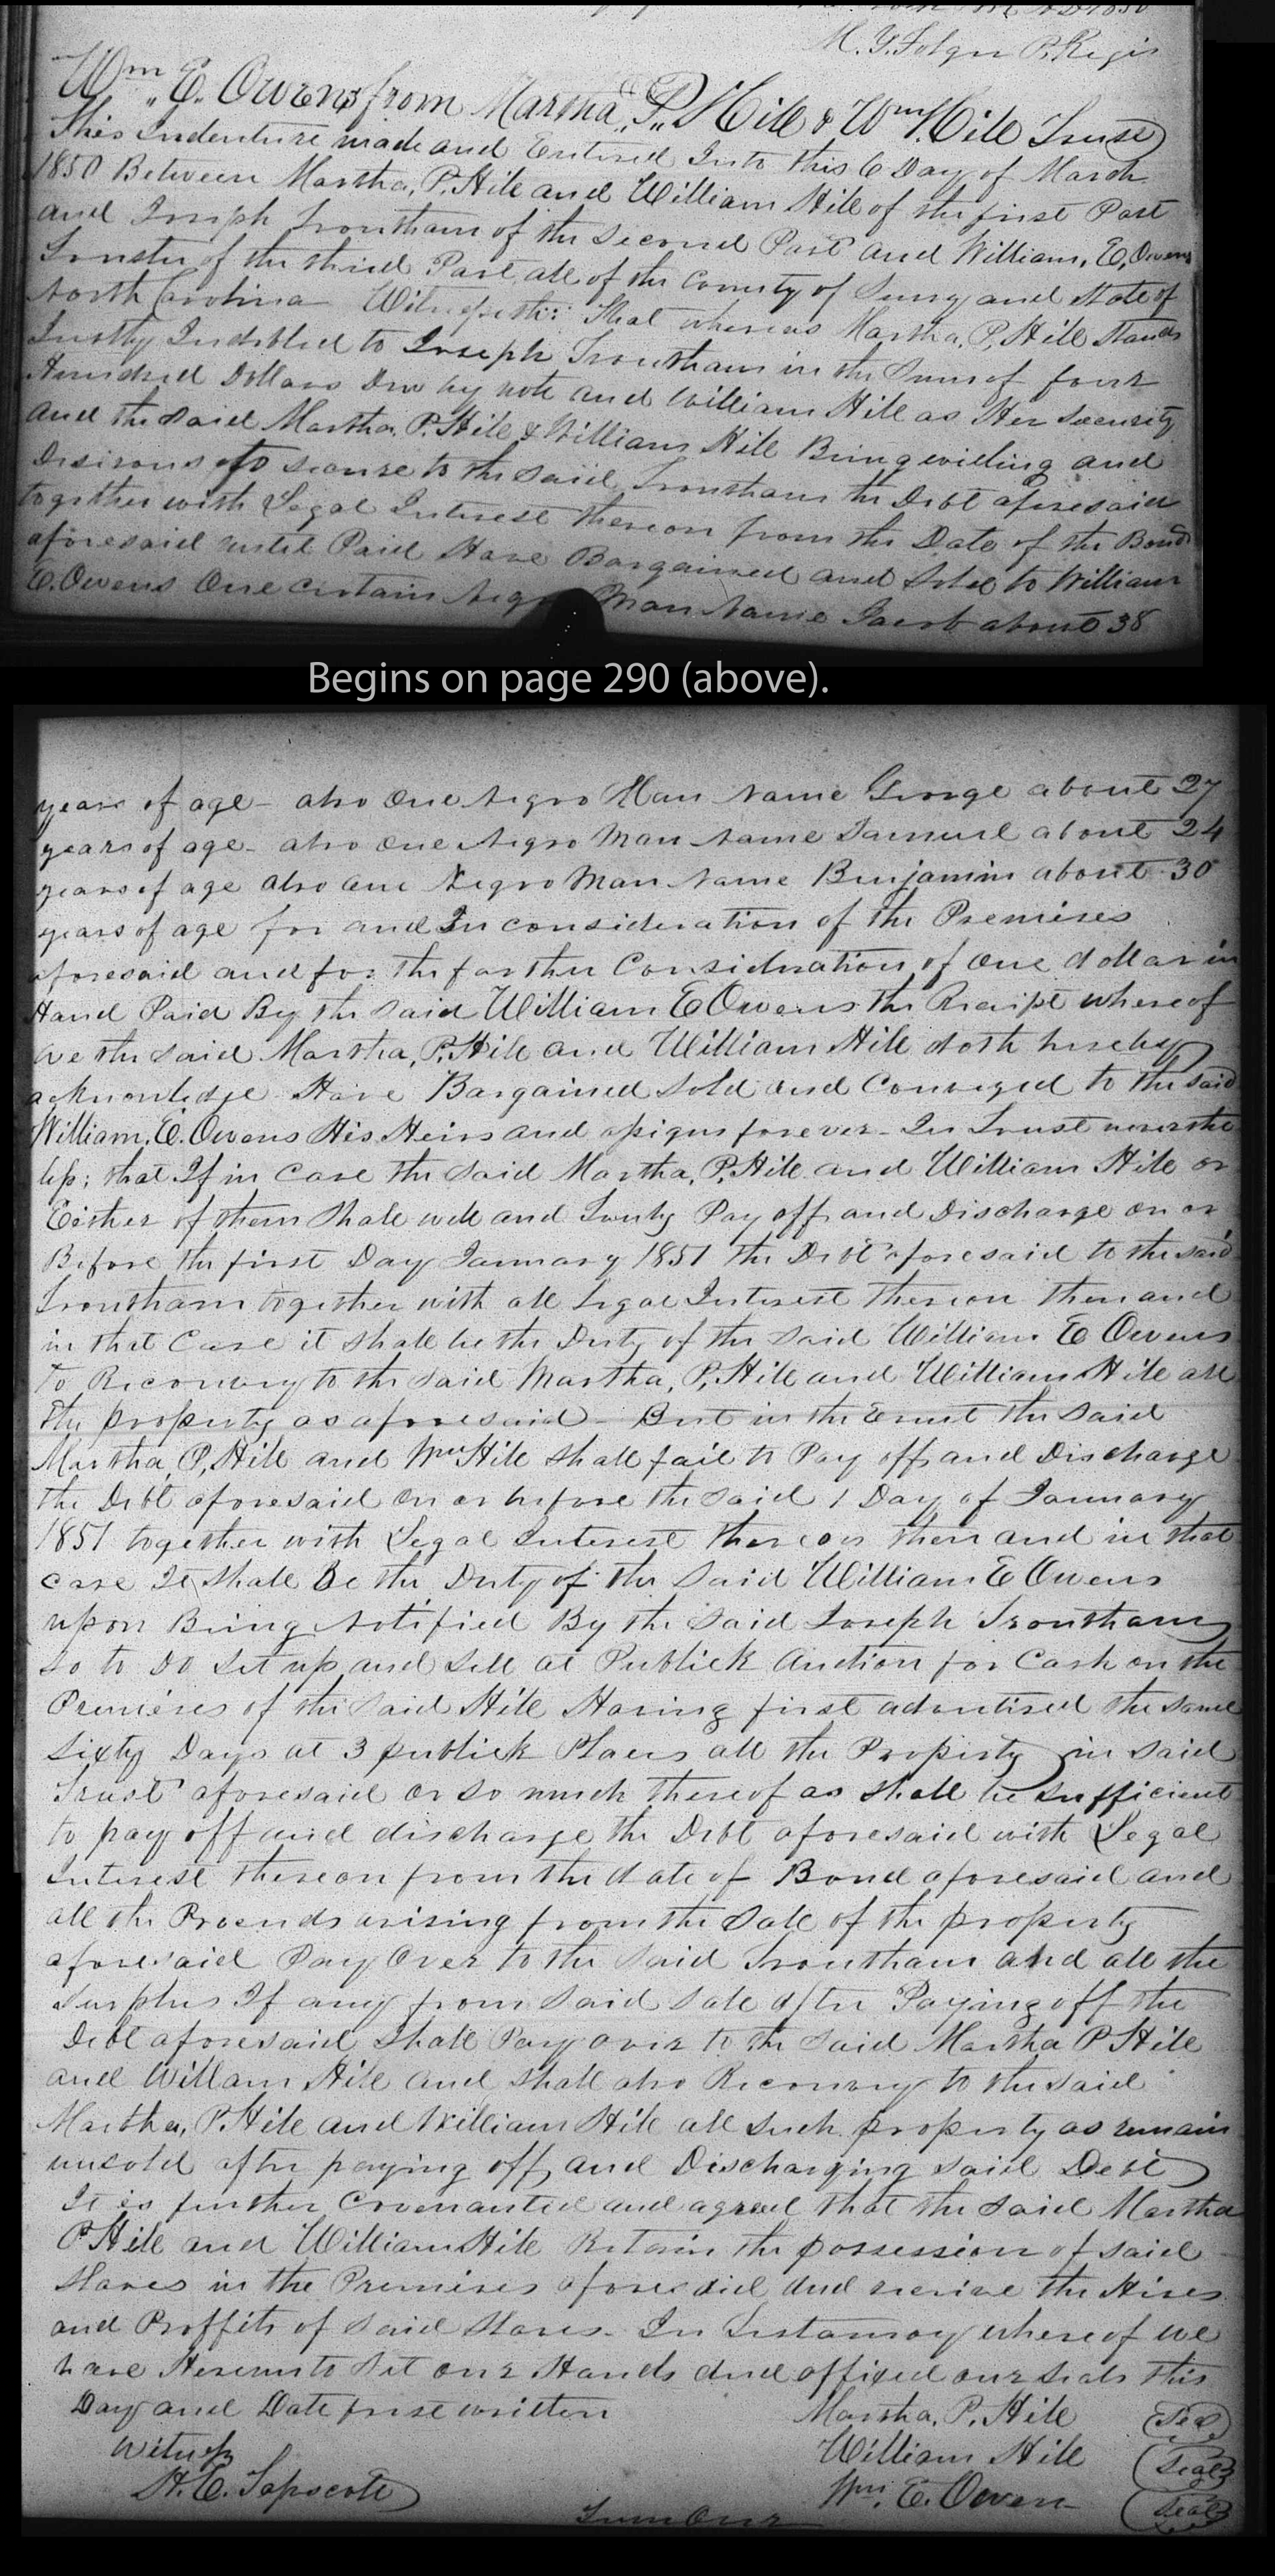 1850
M. Y. Folger P. Regis
Wm. E. Owens from Martha, P, Hill & Wm. Hill Trust
This Indenture made and Entired Into this 6 Day of March
1850 Between Martha, P. Hill and William Hill of the first Part
and Joseph Troutham of the Second Part and William, E, Owens
Truster of the third Part all of the County of Surry and State of
North Carolina Witnesseth: That whereas Martha, P, Hill Stands
Justly Indebted to Joseph Troutham in the Sum of four
Hundred Dollars Due by note and William Hill as Her Security
and the Said Martha, P. Hill & William Hill Being willing and
Desirous to secure to the Said Troutham the Debt aforesaid
together with Legal Interest thereon from the Date of the Bond
aforesaid until Paid Have Bargained and Sold to William
E. Owens One certain Negro Man Name Jacob about 38
Begins on page 290 (above).
years of age - also One Negro Man Name George about 27
years of age - also One Negro Man Name Samuel about 24
years of age also One Negro Man Name Benjamin about 30
years of age for and In consideration of the Premises
aforesaid and for the farther Consideration of One dollar in
Hand Paid By the Said William E Owens the Receipt whereof
we the said Martha, P. Hill and William Hill doth hereby
acknowledge Have Bargained Sold and Conveyed to the said
William, E. Owens His Heirs and assigns forever - In Trust neverthe
less; that If in Case the Said Martha, P, Hill and William Hill or
Either of them Shall well and Truly Pay off and Discharge on or
Before the first Day January 1851 the Debt aforesaid to the said
Troutham together with all legal Interest thereon then and
in that Case it Shall be the Duty of the Said William E Owens
To Reconvey to the Said Martha, P, Hill and William Hill all
the property as aforesaid - But in the Event the Said
Martha, P, Hill and Wm Hill Shall fail to Pay off and Discharge
the Debt aforesaid on or before the Said 1 Day of January
1851 together with Legal Interest thereon then and in that
case It Shall Be the Duty of the Said William E Owens
upon Being Notified By the Said Joseph Troutham
so to Do Set up and Sell at Publick Auction for Cash on the
Premises of the Said Hill Having first advertised the Same
Sixty Days at 3 publick Places all the Property in Said
Trust aforesaid or so much thereof as Shall be Sufficient
to pay off and discharge the Debt aforesaid with Legal
Interest thereon from the date of Bond aforesaid and
all the Proceeds arising from the Sale of the property
aforesaid Pay Over to the Said Troutham and all the
Surplus If any from Said Sale after Paying off the
Debt aforesaid Shall Pay over to the Said Martha P Hill
and Willam Hill and Shall also Reconvey to the Said
Martha, P. Hill and William Hill all Such property as remain
unsold after paying off and Discharging Said Debt
It is further Covenanted and agreed that the Said Martha
P Hill and William Hill Retain the possession of Said
Slaves in the Premises aforesaid and receive the Hires
and Proffits of Said Slaves - In Testamony whereof we
have Hereunto Set our Hands and affixed our Seals this
Day and Date first written Martha, P. Hill Seal
Witness William Hill Seal
H. C. Wm. E. Owen Seal
Turn Over